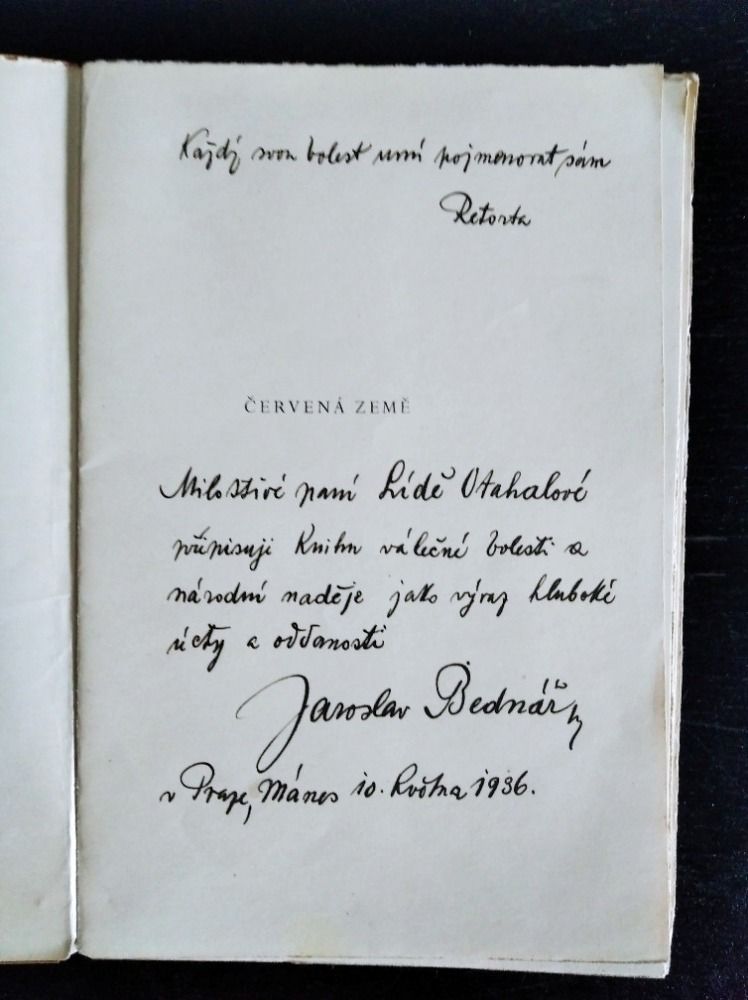 Každý svou bolest umí pojmenovat sám
Retorta
ČERVENÁ ZEMĚ
Milostivé paní Lídě Otahalové
připisuji Knihu válečné bolesti a
národní naděje jako výraz hluboké
úcty a oddanosti
Jaroslav Bednář
v Praze, Mánes 10. května 1936.